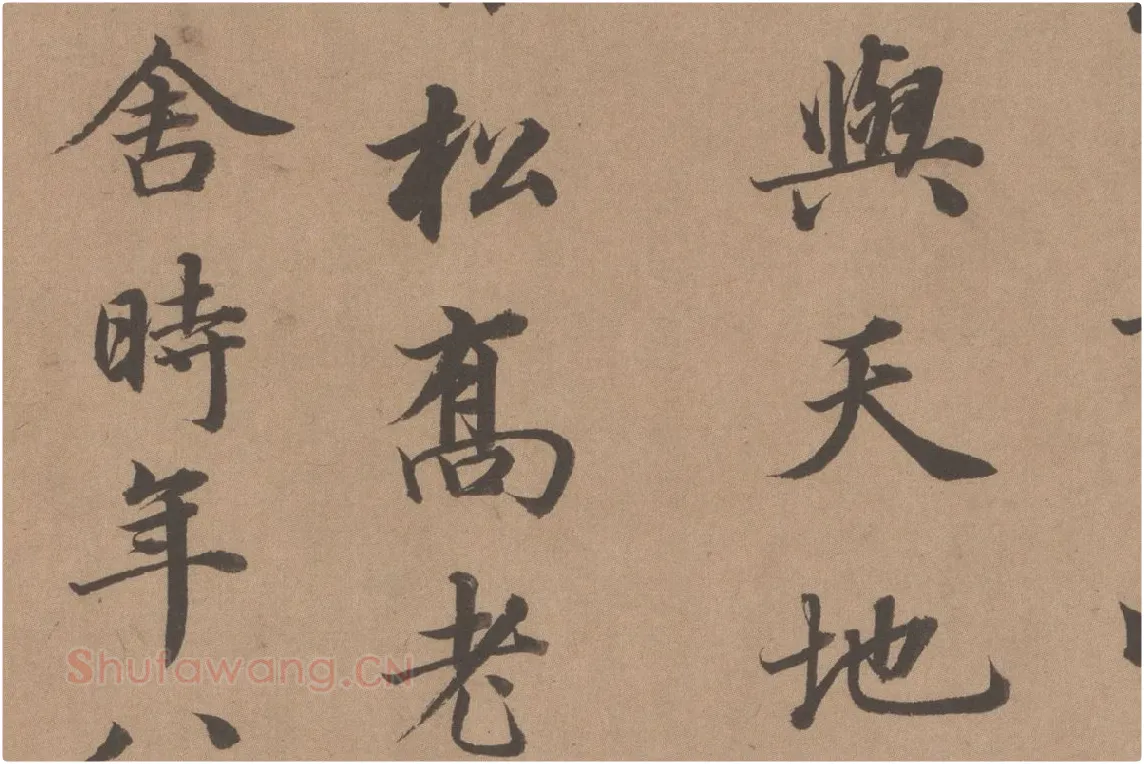 與天地
松高老
舍時年八
Shufawang.CN